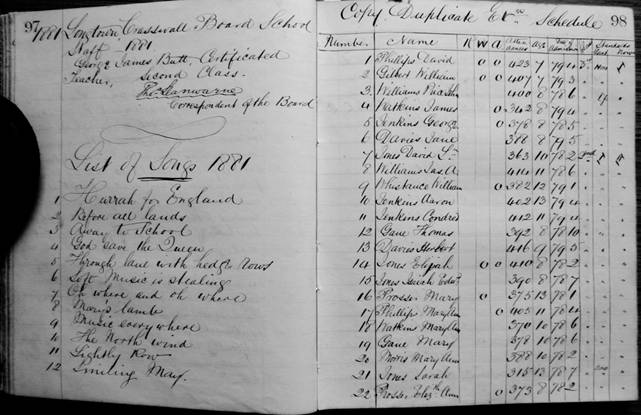 97
1881 Longtown, Crasswall Board School
Staff 1881
George James Butt, Certificated
Teacher, Second Class.
Correspondent of the Board
List of Songs 1881
1 Hurrah for England
2 Before all lands
3 Away to School
4 God save the Queen
5 Through lane with hedge rows
6 Soft Music is stealing
7 Oh where and oh where
8 Mary's lamb
9 Music everywhere
10 The North wind
11 Lightly Row
12 Smiling May.
Copy Duplicate Exn Schedule 98
Number Name R W A
1 Phillips David 0 0 423 7 79 4
2 Gilbert William 0 0 407 7 79 3
3 Williams 400 8 78 6
4 Watkins James 0 342 8 79 4
5 Jenkins George 0 378 8 78 5
6 Davies Jane 388 8 79 5
7 Jones David 363 10 78 2
8 Williams 414 11 78 6
9 Whistance William 0 382 12 79 1
10 Jenkins Aaron 402 13 79 4
11 Jenkins 412 11 79 4
12 Gane Thomas 392 8 78 10
13 Davies Herbert 416 9 79 5
14 Jones Elijah 0 0 410 8 78 2
15 Jones 390 8 78 7
16 Prosser Mary 0 375 13 78 1
17 Phillips Mary Ann 0 405 11 78 4
18 Watkins Mary Ann 370 10 78 6
19 Gane Mary 378 10 78 6
20 Morris Mary Ann 388 10 78 2
21 Jones Sarah 315 13 78 7
22 Prosser Elizth Ann 0 0 373 8 78 2